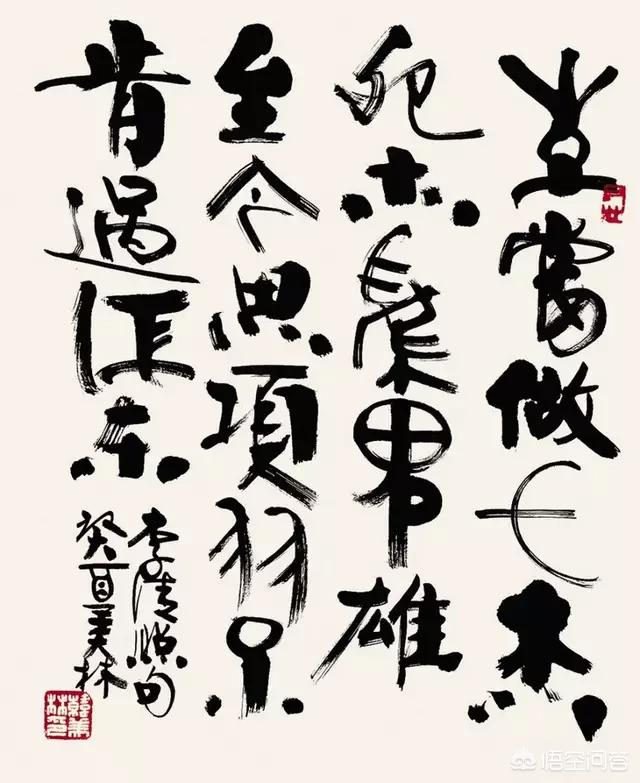 生當做人杰
死亦為鬼雄
至今思項羽不
肯過江东
李清照句
癸酉美林
悟空问答